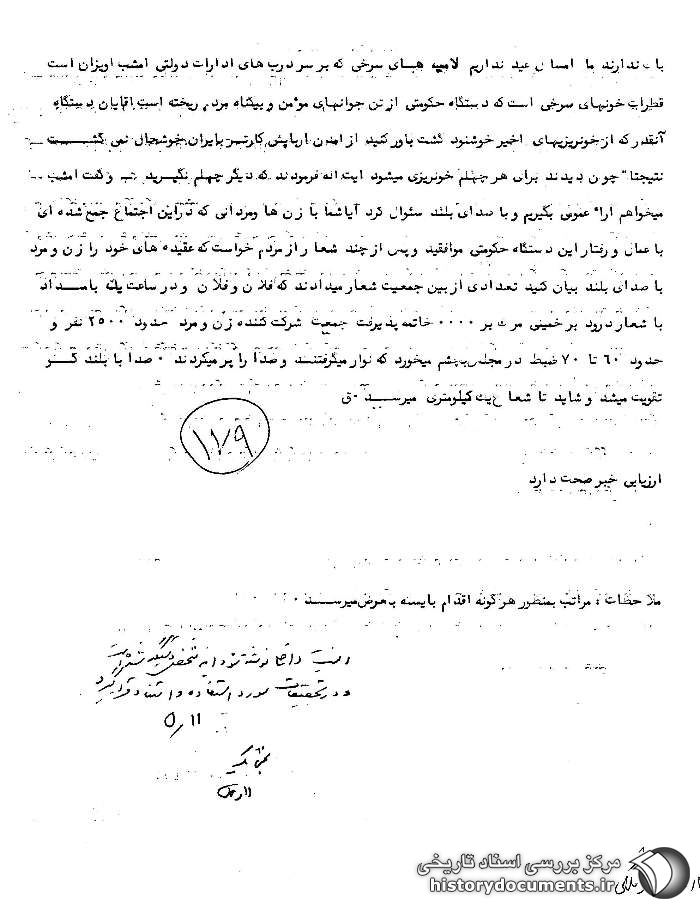 با ندارند ما امسال عید نداریم لامپ های سرخی که بر سر درب های ادارات دولتی امشب اویزان است
قطرات خونهای سرخی است که دستگاه حکومتی از تن جوانهای مؤمن و بیگناه مردم ریخته است اقایان دستگاه
آنقدر که از خونریزیهای اخیر خوشنود گشت باور کنید از امدن اربابش کارتر بایران خوشحال نمی گشت
نتیجتا" چون دیدند برای هر چهلم خونریزی میشود ایت اله فرمودند که دیگر چهلم نگیرید و گفت امشب
میخواهم ارا" عمومی بگیریم و با صدای بلند سئوال کرد آیا شما با زن ها و مردانی که در این اجتماع جمع شده ای
با عمال و رفتار این دستگاه حکومتی موافقید و پس از چند شعار از مردم خواست که عقیده های خود را زن و مرد
با صدای بلند بیان کنید تعدادی از بین جمعیت شعار میدادند که فلان و فلان و در ساعت یک بامداد
با شعار درود بر خمینی مرگ بر ۰۰۰۰ خاتمه پذیرفت جمعیت شرکت کننده زن و مرد حدود ۲۵۰۰ نفر و
حدود ۶۰ تا ۷۰ ضبط در مجلس بچشم میخورد که نوار میگرفتند و صدا را پر میکردند ۰ صدا با بلند گو
تقویت میشد و شاید تا شعاع یک کیلومتری میرسید ۰ق
۱۷۹
ارزیابی خبر صحت دارد
ملاحظات : مراتب بمنظور هرگونه اقدام بایسته بعرض میرسد ۰
نوشته شود این شخص دستگیر شده است
و در تحقیقات مورد استفاده و استناد قرار گیرد
۱۱/۵
مرکز بررسی اسناد تاریخی
historydocuments.ir